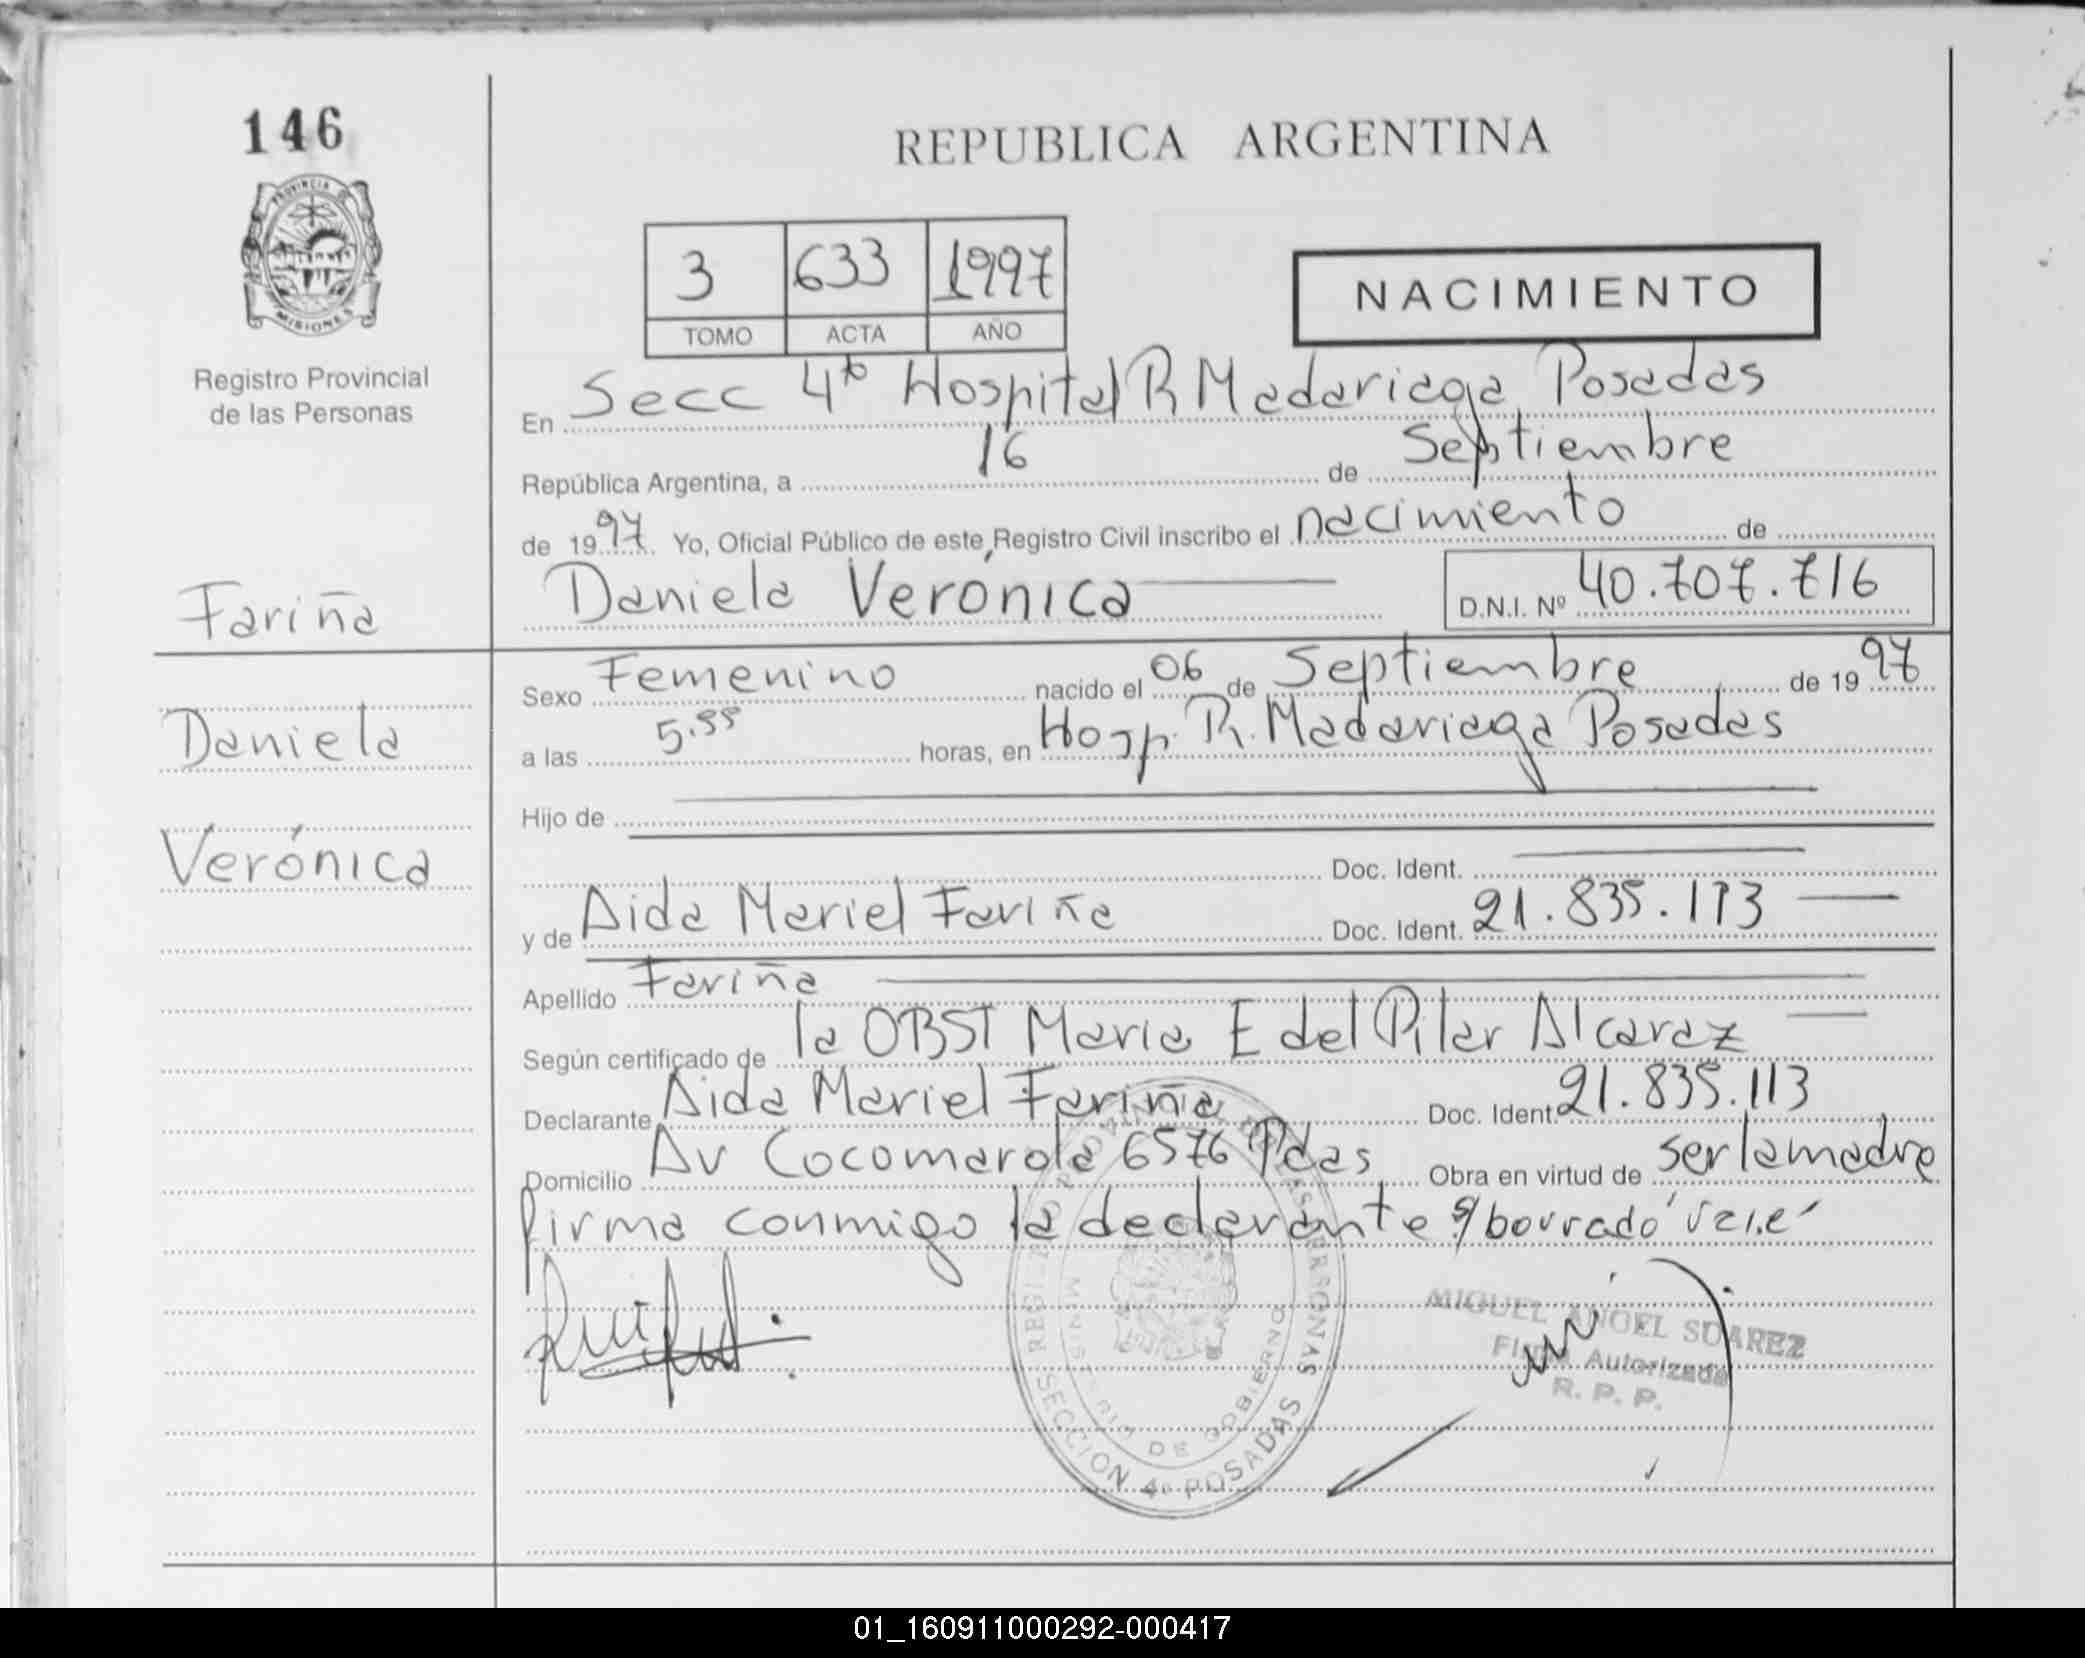 146
PROVINCIA DE
MISIONES
Registro Provincial
de las Personas
Fariña
Daniela
Verónica
REPUBLICA ARGENTINA
3 633 1997
TOMO ACTA AÑO
NACIMIENTO
En Secc 4ta Hospital R Madariaga Posadas
República Argentina, a 16 de Septiembre
de 1997. Yo, Oficial Público de este Registro Civil inscribo el nacimiento de
Daniela Verónica D.N.I. Nº 40.707.716
Sexo Femenino nacido el 06 de Septiembre de 1997
a las 5.55 horas, en Hosp. R. Madariaga Posadas
Hijo de
Doc. Ident.
y de Aida Mariel Fariña Doc. Ident. 21.835.113
Apellido Fariña
Según certificado de la OBST Maria E del Pilar Alcaraz
Declarante Aida Mariel Fariña Doc. Ident. 21.835.113
Domicilio Av Cocomarola 6576 Pdas Obra en virtud de ser la madre
firma conmigo la declarante s/borrado "vale"
REGISTRO PROVINCIAL DE LAS PERSONAS
MINISTERIO DE GOBIERNO
SECCION 4º POSADAS
MIGUEL ANGEL SUAREZ
Firma Autorizada
R. P. P.
01_160911000292-000417